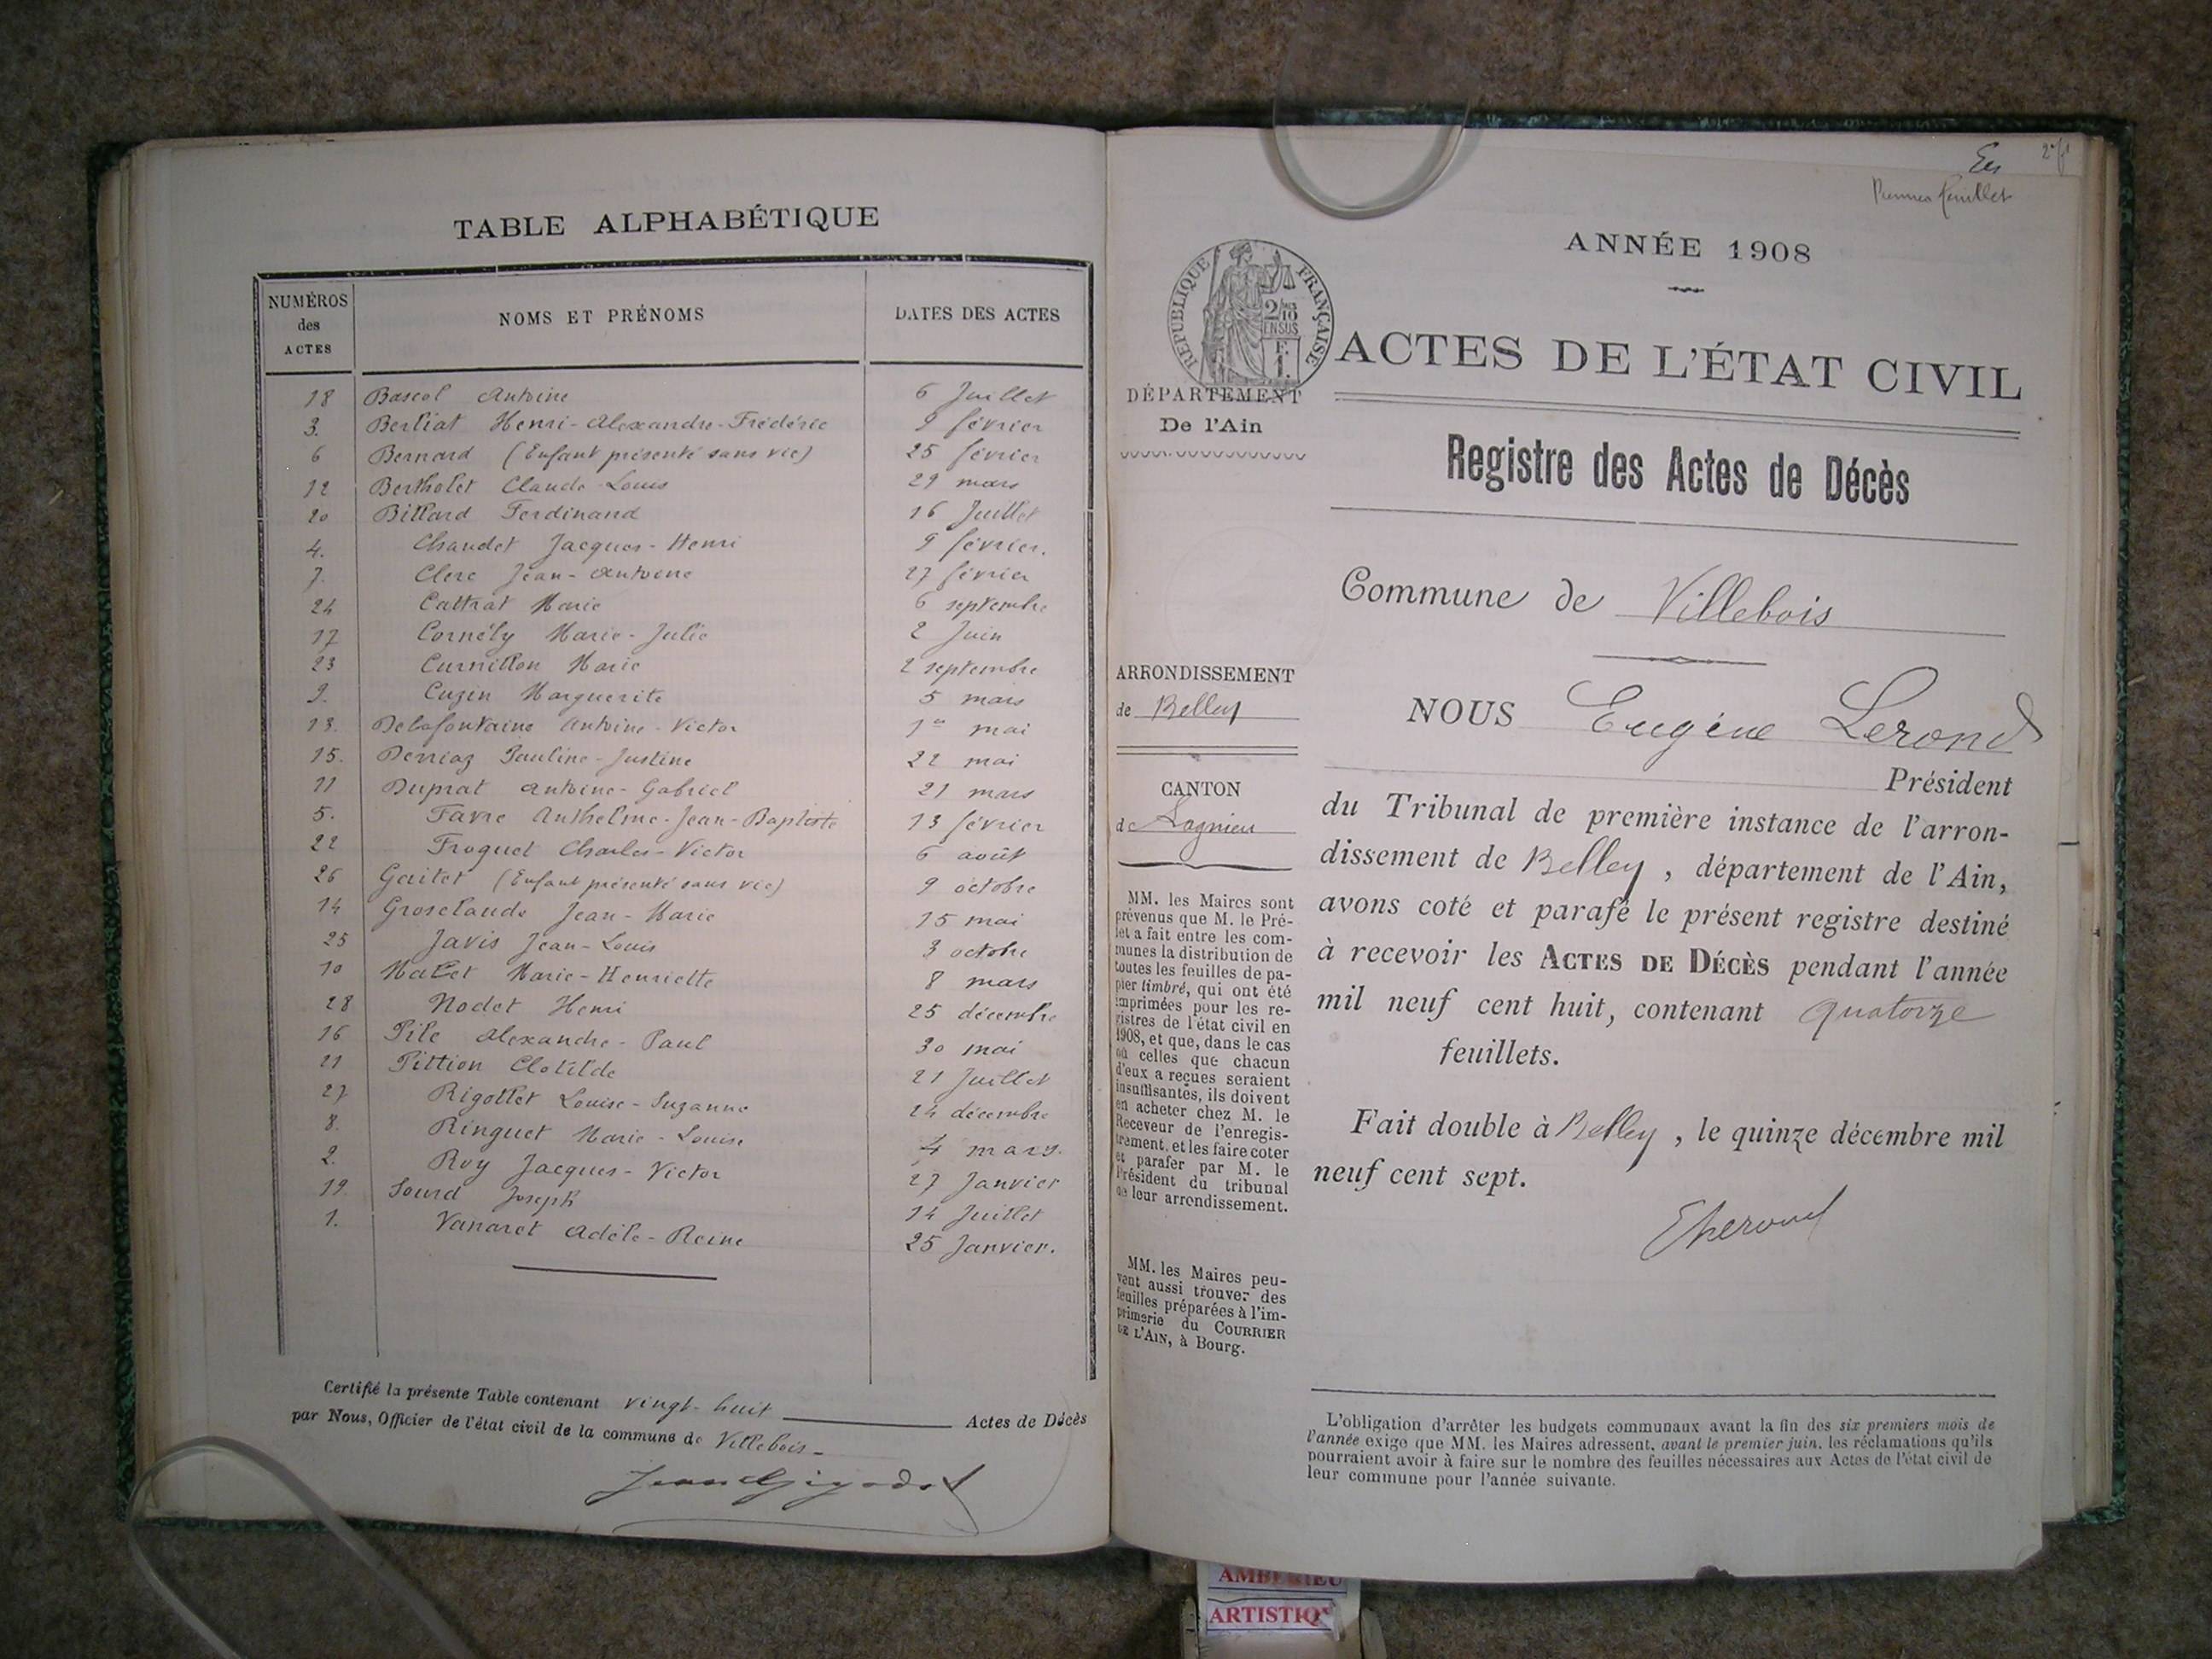 TABLE ALPHABÉTIQUE
NUMÉROS des ACTES NOMS ET PRÉNOMS DATES DES ACTES
18 Bascol Antoine 6 Juillet
3. Berliat Henri-Alexandre-Frédéric 9 février
6 Bernard (Enfant présenté sans vie) 25 février
12 Bertholet Claude-Louis 29 mars
20 Billard Ferdinand 16 Juillet
4. Chaudet Jacques-Henri 9 février.
7. Clerc Jean-Antoine 27 février
24 Cattrat Marie 6 septembre
17 Cornély Marie-Julie 2 Juin
23 Curnillon Marie 2 septembre
9. Cuzin Marguerite 5 mars
13. Delafontaine Antoine-Victor 1er mai
15. Derriaz Pauline-Justine 22 mai
11 Duprat Antoine-Gabriel 21 mars
5. Favre Anthelme-Jean-Baptiste 13 février
22 Froquet Charles-Victor 6 août
26 Gaitet (Enfant présenté sans vie) 9 octobre
14 Groselaude Jean-Marie 15 mai
25 Javis Jean-Louis 3 octobre
10 Malet Marie-Henriette 8 mars
28 Nodet Henri 25 décembre
16 Pile Alexandre-Paul 30 mai
21 Pittion Clotilde 21 Juillet
27 Rigollet Louise-Suzanne 24 décembre
8. Ringuet Marie-Louise 4 mars.
2. Roy Jacques-Victor 27 Janvier
19 Sourd Joseph 14 Juillet
1. Vanaret Adèle-Reine 25 Janvier.
Certifié la présente Table contenant vingt-huit Actes de Décès
par Nous, Officier de l'état civil de la commune de Villebois-
2e ft
Premier feuillet
ANNÉE 1908
RÉPUBLIQUE FRANÇAISE
2/10
EN SUS
F.
1.
ACTES DE L'ÉTAT CIVIL
DÉPARTEMENT
De l'Ain
Registre des Actes de Décès
Commune de Villebois
ARRONDISSEMENT
de Belley
CANTON
de Lagnieu
MM. les Maires sont
prévenus que M. le Pré-
fet a fait entre les com-
munes la distribution de
toutes les feuilles de pa-
pier timbré, qui ont été
imprimées pour les re-
gistres de l'état civil en
1908, et que, dans le cas
où celles que chacun
d'eux a reçues seraient
insuffisantes, ils doivent
en acheter chez M. le
Receveur de l'enregis-
trement, et les faire coter
et parafer par M. le
Président du tribunal
de leur arrondissement.
MM. les Maires peu-
vent aussi trouver des
feuilles préparées à l'im-
primerie du COURRIER
DE L'AIN, à Bourg.
NOUS Eugène Lerond
Président
du Tribunal de première instance de l'arron-
dissement de Belley, département de l'Ain,
avons coté et parafé le présent registre destiné
à recevoir les ACTES DE DÉCÈS pendant l'année
mil neuf cent huit, contenant quatorze
feuillets.
Fait double à Belley, le quinze décembre mil
neuf cent sept.
L'obligation d'arrêter les budgets communaux avant la fin des six premiers mois de
l'année exige que MM. les Maires adressent, avant le premier juin, les réclamations qu'ils
pourraient avoir à faire sur le nombre des feuilles nécessaires aux Actes de l'état civil de
leur commune pour l'année suivante.